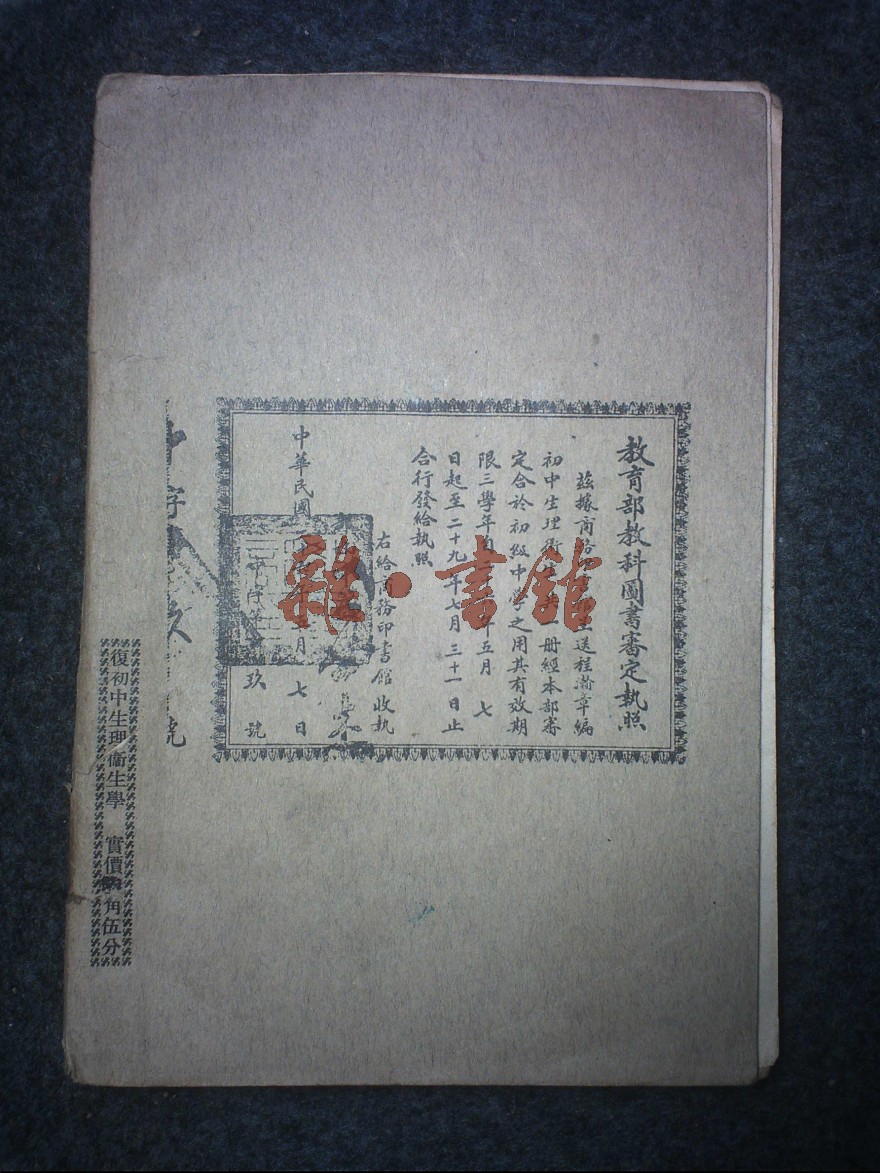 教育部教科圖書審定執照
茲據商務送程瀚章編
初中生理一册經本部審
定合於初級中之用其有效期
限三學年五月七
日起至二十九年七月三十一日止
合行發給執照
右給商務印書館收執
中華民國月七日
玖號
字號
復初中生理衞生學 實價角伍分
雜·書館